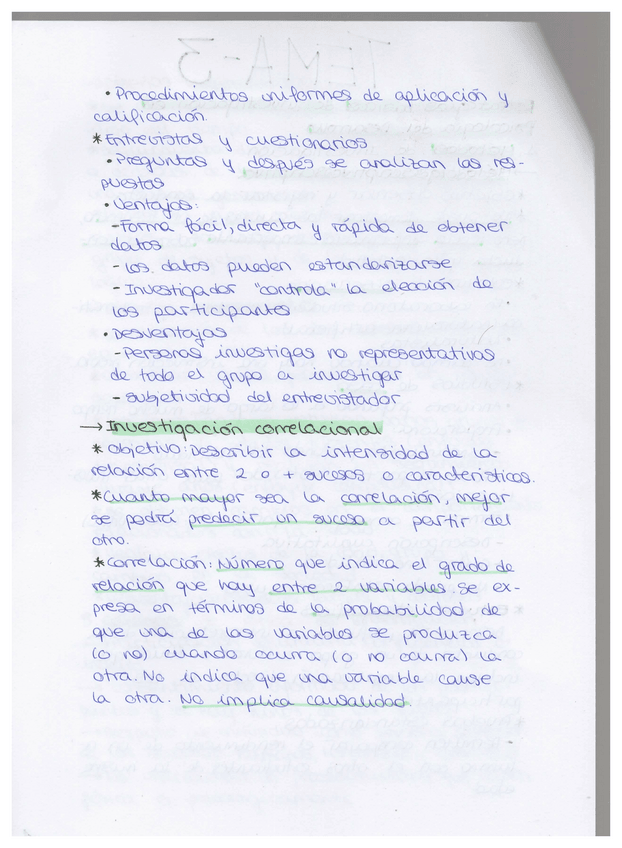 • Procedimientos uniformes de aplicación y
calificación
* Entrevistas y cuestionarios
• Preguntas y después se analizan las res-
puestas
• Ventajas:
- Forma fácil, directa y rápida de obtener
datos
- Los datos pueden estandarizarse
- Investigador "controla" la elección de
los participantes
• Desventajas
- Personas investigas no representativas
de todo el grupo a investigar
- Subjetividad del entrevistador
→ Investigación correlacional
* Objetivo: Describir la intensidad de la
relación entre 2 o + sucesos o características.
* Cuanto mayor sea la correlación, mejor
se podrá predecir un suceso a partir del
otro.
* Correlación: Número que indica el grado de
relación que hay entre 2 variables. Se ex-
presa en términos de la probabilidad de
que una de las variables se produzca
(o no) cuando ocurra (o no ocurra) la
otra. No indica que una variable cause
la otra. No implica causalidad.